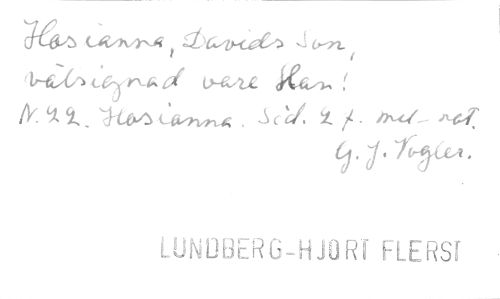 Hosianna, Davids Son,
välsignad vare Han!
N. 22. Hosianna. Sid. 2 f. mel-not.
G. J. Vogler.
LUNDBERG-HJORT FLERST